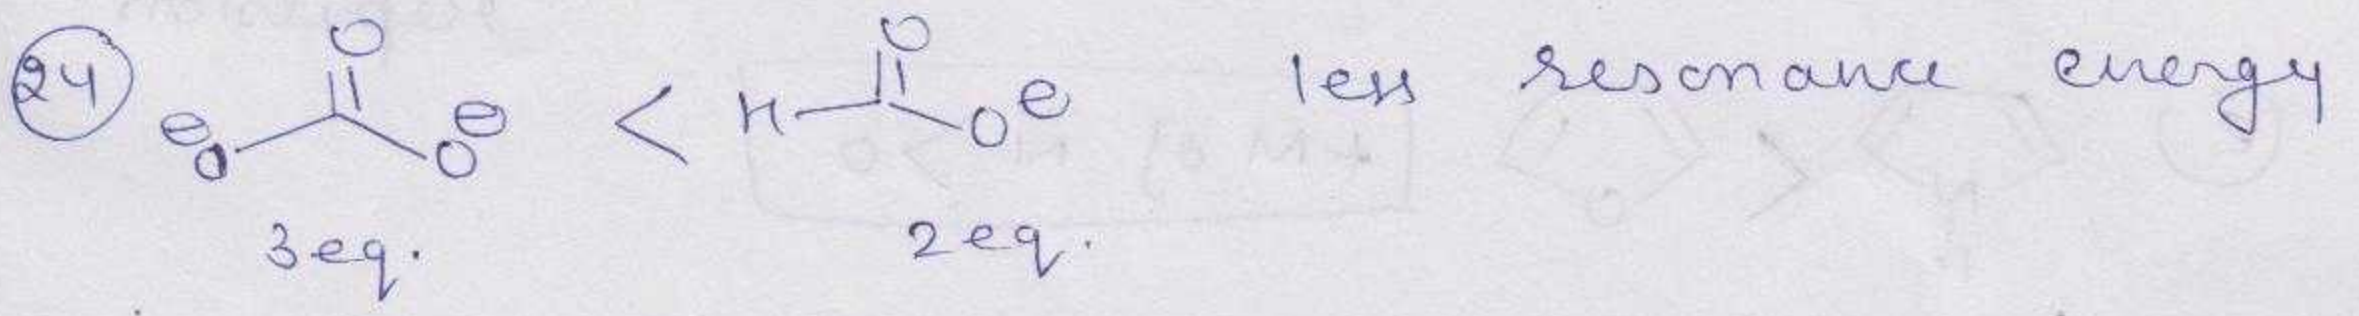 24 O O
⊖O O⊖ < H O⊖ less resonance energy
3eq. 2eq.